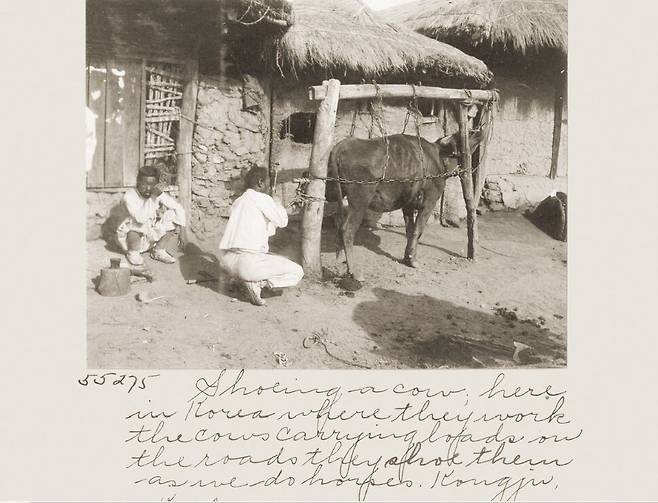 55275 Shoeing a cow, here
in Korea where they work
the cows carrying loads on
the roads they shoe them
as we do horses. Kongju,